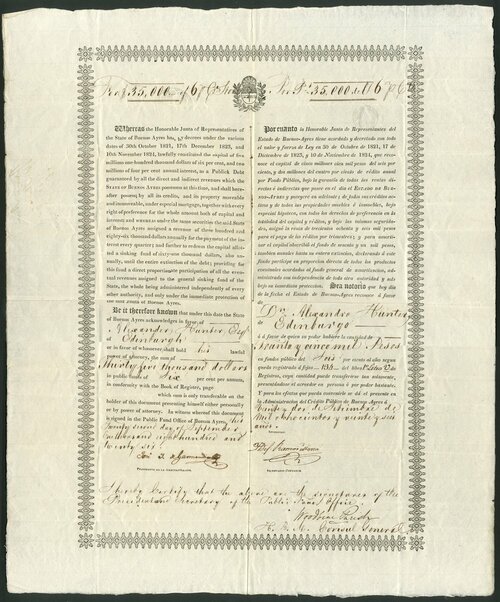 35,000
35,000
Whereas the Honorable Junta of Representatives of
the State of Buenos Ayres has, by decrees under the various
dates of 30th October 1821, 17th December 1823, and
10th November 1824, lawfully constituted the capital of five
millions one hundred thousand dollars of six per cent, and two
millions of four per cent annual interest, as a Publick Debt
guaranteed by all the direct and indirect revenues which the
State of Buenos Ayres possesses at this time, and shall here-
after possess by all its credits, and its property moveable
and immoveable, under especial mortgage, together with every
right of preference for the whole amount both of capital and
interest: and whereas under the same securities the said State
of Buenos Ayres assigned a revenue of three hundred and
eighty-six thousand dollars annually for the payment of the in-
terest every quarter; and further to redeem the capital allot-
ted a sinking fund of sixty-one thousand dollars, also an-
nually, until the entire extinction of the debt; providing for
this fund a direct proportionate participation of all the eventual
revenues assigned to the general sinking fund of the
State, the whole being administered independently of every
other authority, and only under the immediate protection of
the said Junta of Buenos Ayres.
Be it therefore known that under this date the State
of Buenos Ayres acknowledges in favor of
Alexander Hunter Esqr
of Edinburgh
or in favor of whomsoever shall hold his lawful
power of attorney, the sum of
Thirty five thousand dollars
in public funds of Six per cent per annum,
in conformity with the Book of Registry, page
which sum is only transferable on the
holder of this document presenting himself either personally
or by power of attorney. In witness whereof this document
is signed in the Public Fund Office of Buenos Ayres, this
twenty second day of September
one thousand eight hundred and
twenty six
Presidente de la Administracion.
Por cuanto la Honorable Junta de Representantes del
Estado de Buenos-Ayres tiene acordado y decretado con todo
el valor y fuerza de Ley en 30 de Octubre de 1821, 17 de
Diciembre de 1823, y 10 de Noviembre de 1824, que reco-
noce el capital de cinco millones cien mil pesos del seis por
ciento, y dos millones del cuatro por ciento de crédito anual
por Fondo Público, bajo la garantía de todas las rentas di-
rectas é indirectas que posee en el dia el Estado de Buenos
-Ayres y poseyere en adelante; de todos sus créditos ac-
tivos y de todas las propiedades muebles é inmuebles, bajo
especial hipoteca, con todos los derechos de preferencia en la
totalidad del capital y réditos, y bajo las mismas seguridades,
asignó la renta de trecientos ochenta y seis mil pesos
para el pago de los réditos por trimestres; y para amorti-
zar el capital inscribió el fondo de sesenta y un mil pesos,
tambien anuales hasta su entera extincion, declarando á este
fondo participe en proporcion directa de todos los productos
eventuales acordados al fondo general de amortizacion, ad-
ministrado con independencia de toda otra autoridad y solo
bajo su inmediata proteccion. Sea notorio que hoy dia
de la fecha el Estado de Buenos-Ayres reconoce á favor
de Dn. Alexandro Hunter
de Edinburgo
ó á favor de quien su poder hubiere la cantidad de
treinta y cinco mil Pesos
en fondos públicos del Seis por ciento al año segun
queda registrado á fojas 134 del libro
de Registros, cuya cantidad puede transferirse tan solamente,
presentándose el acreedor en persona ó por poder bastante.
Y para los efectos que pueda convenirle se dá el presente en
la Administracion del Crédito Público de Buenos Ayres á
veinte y dos de Setiembre de
mil ochocientos y veinte y seis
anos.
Secretario-Contador.
I hereby Certify that the above are the signatures of the
President and Secretary of the Public Fund Office.
Woodbine Parish
H. B. M. Consul General